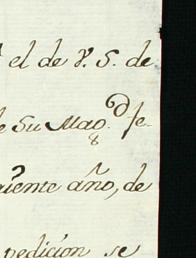 el de V. S. de
de Su Mag.d fe-
uiente año, de
pedicion se